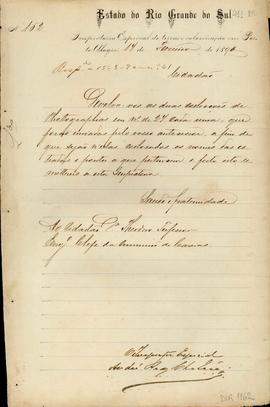 Estado do Rio Grande do Sul
Nº 162
Inspectoria Especial de terras e colonisação em Por-
to Alegre, 14 de Janeiro de 189
Cidadão
Devolvo-vos as duas collecções de
Photographias em nº de 27 cada uma, que
foram enviadas pelo vosso antecessor, a fim de
que sejão n'ellas collocados os nomes das es-
tradas e pontos a que pertencem e feito isto re-
mettereis a esta Inspectoria.
Saude e fraternidade
Ao Cidadão
Engº Chefe da Commissão de Caxias
O Inspector Especial